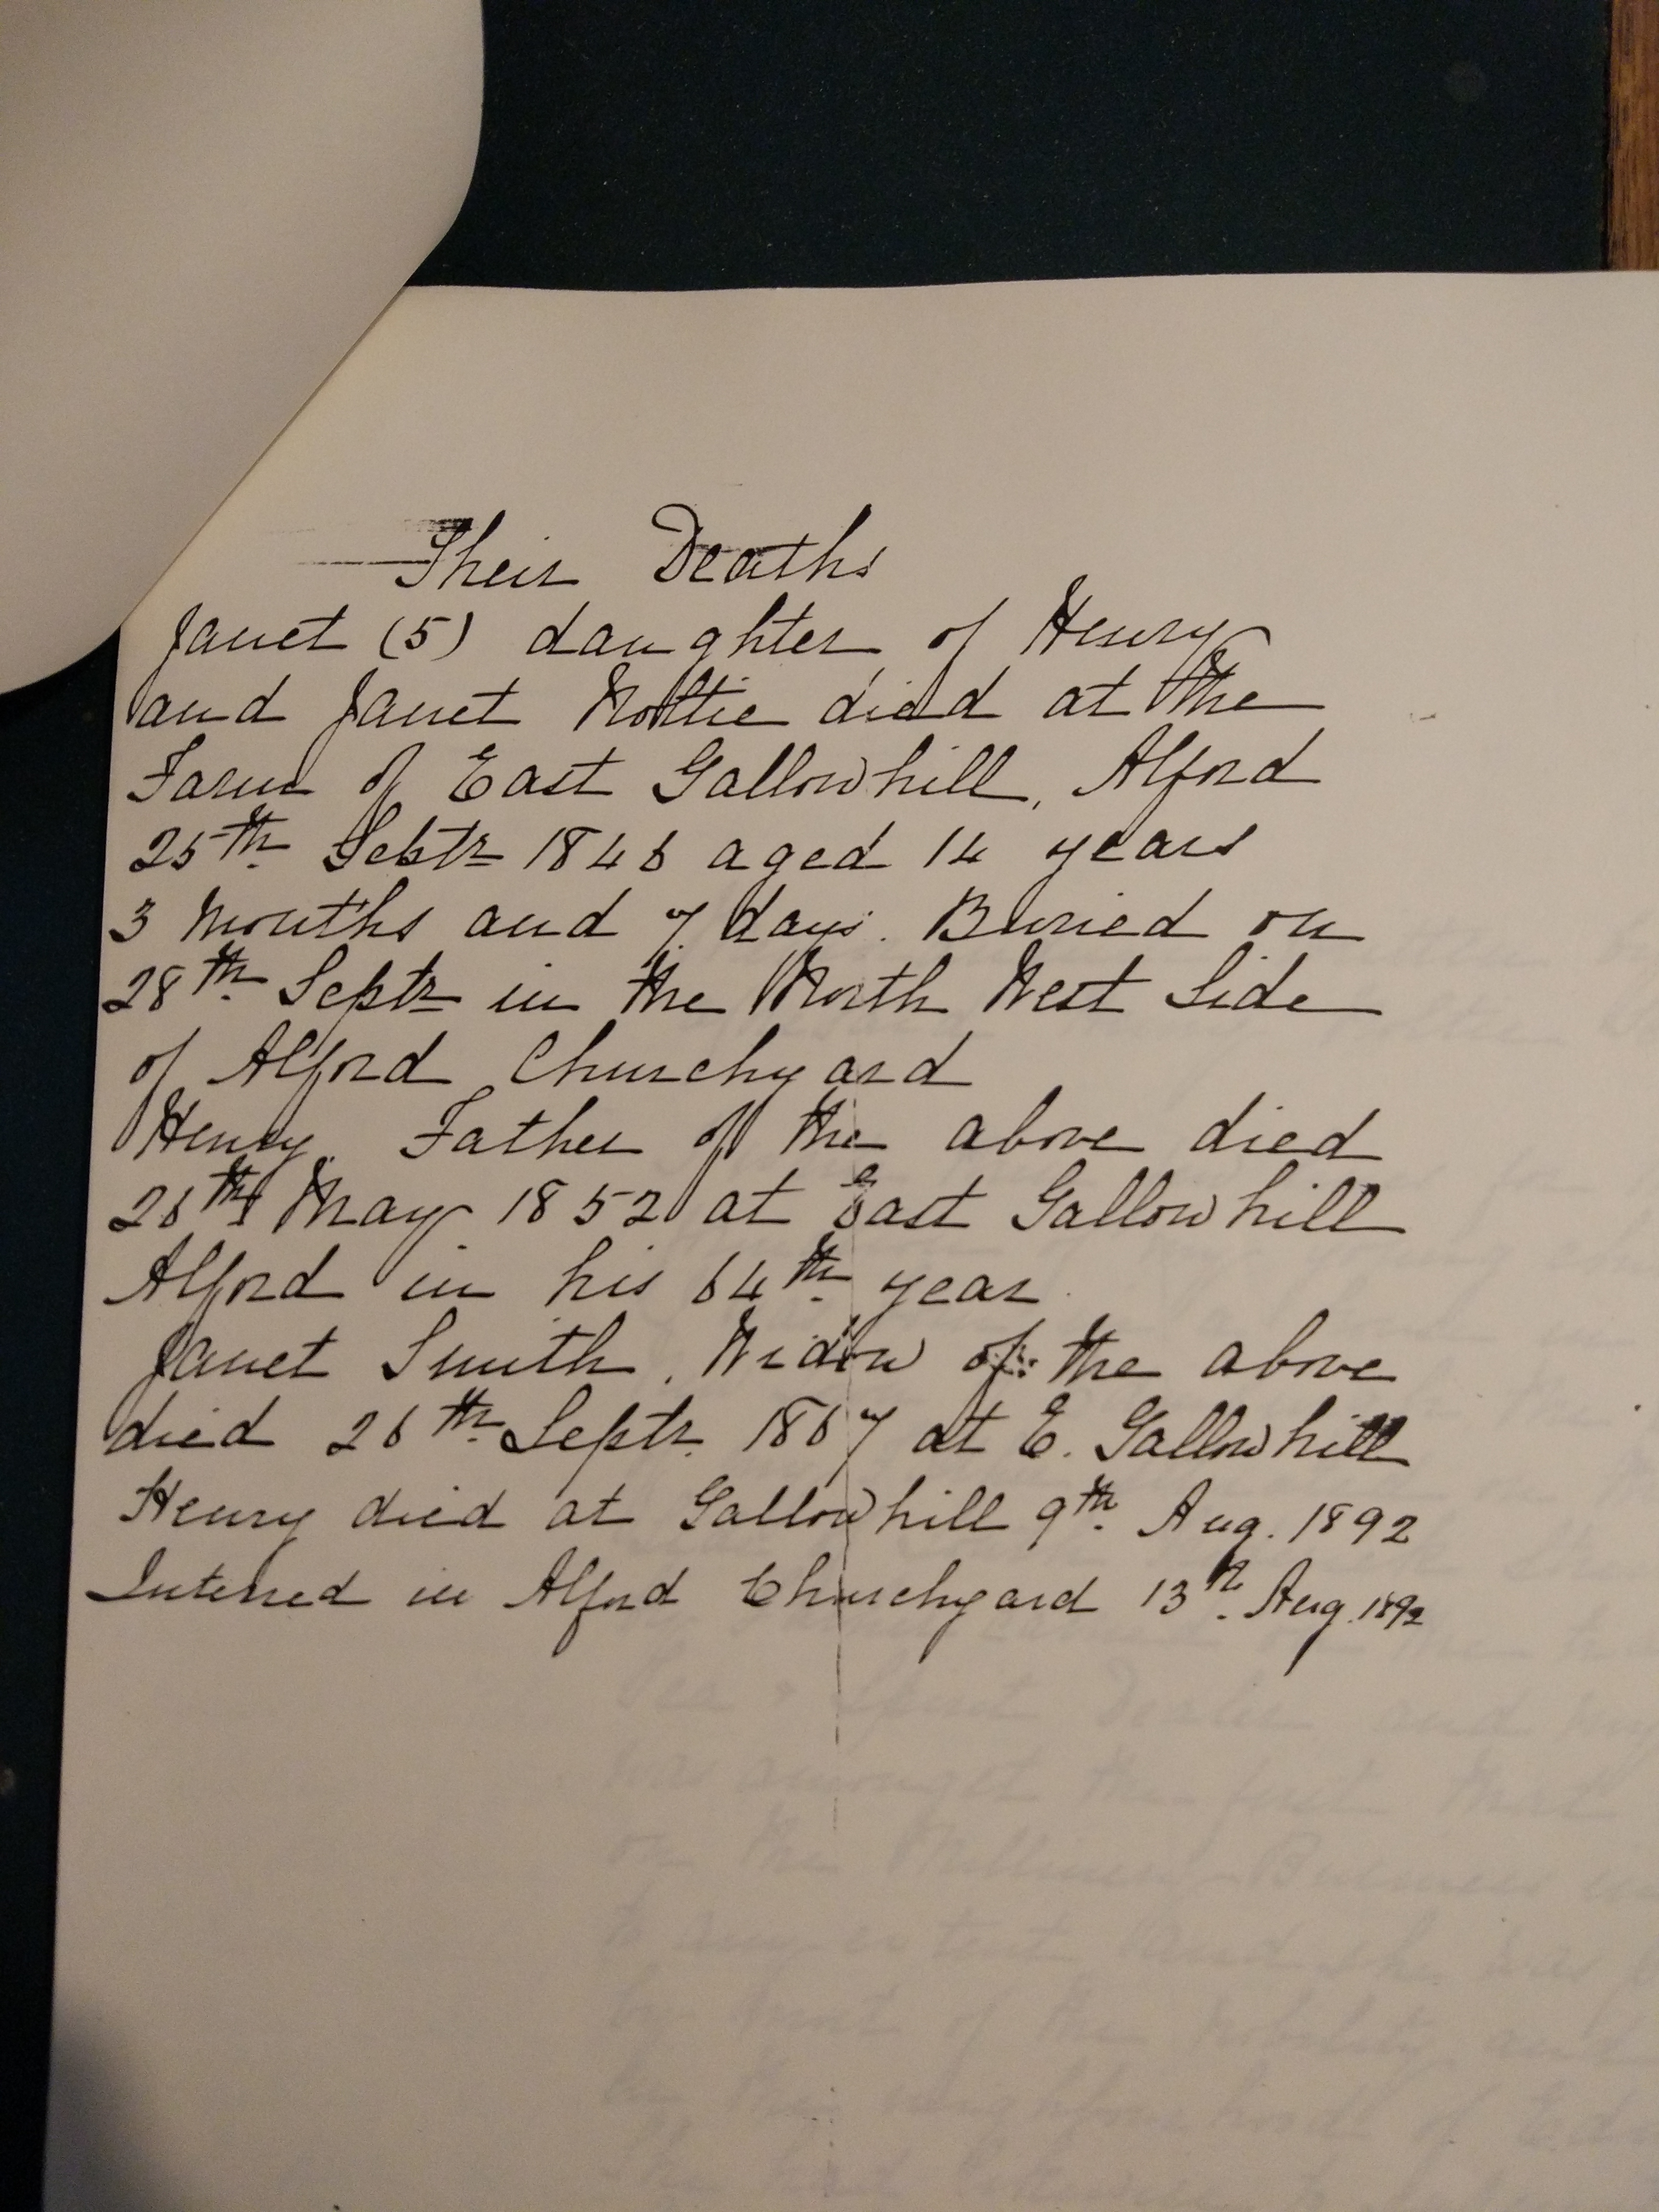 Their Deaths
Janet (5) daughter of Henry
and Janet Wattie died at the
Farm of East Gallowhill, Alford
25th Septr 1846 aged 14 years
3 Months and 7 days. Buried on
28th Septr in the North West Side
of Alford Churchyard
Henry. Father of the above died
26th May 1852 at East Gallowhill
Alford in his 64th year.
Janet Smith, Widow of the above
died 26th Septr. 1867 at E. Gallowhill
Henry died at Gallowhill 9th Aug. 1892
Interred in Alford Churchyard 13th Aug. 1892